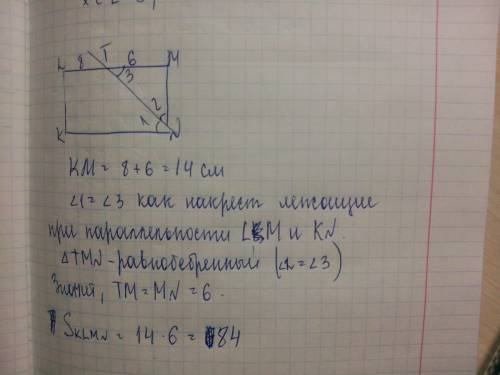 L 8 T 6 M
3
1 2
K N
KM = 8 + 6 = 14 см
∠1 = ∠3 как накрест лежащие
при параллельности LM и KN.
ΔTMN - равнобебренный (∠2 = ∠3)
Значит, TM = MN = 6.
SKLMN = 14 · 6 = 84